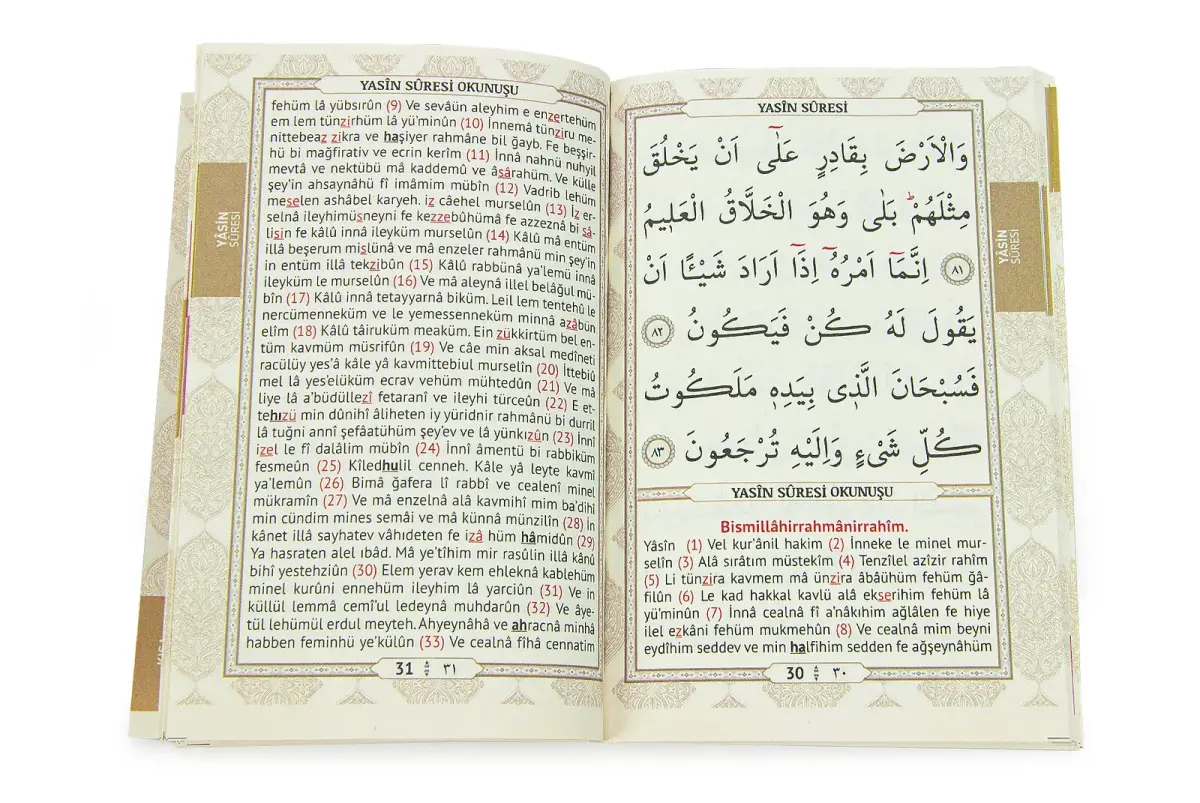 YASİN SÛRESİ
وَالْاَرْضَ بِقَادِرٍ عَلٰٓى اَنْ يَخْلُقَ
مِثْلَهُمْۜ بَلٰى وَهُوَ الْخَلَّاقُ الْعَلٖيمُ
﴿٨١﴾ اِنَّمَٓا اَمْرُهُٓ اِذَٓا اَرَادَ شَيْـًٔا اَنْ
يَقُولَ لَهُ كُنْ فَيَكُونُ ﴿٨٢﴾
فَسُبْحَانَ الَّذٖى بِيَدِهٖ مَلَكُوتُ
كُلِّ شَىْءٍ وَاِلَيْهِ تُرْجَعُونَ ﴿٨٣﴾
YASÎN SÛRESİ OKUNUŞU
Bismillâhirrahmânirrahîm.
Yâsîn (1) Vel kur’ânil hakim (2) İnneke le minel mur-
selîn (3) Alâ sırâtım müstekîm (4) Tenzîlel azîzir rahîm
(5) Li tünzira kavmem mâ ünzira âbâühüm fehüm ğâ-
filûn (6) Le kad hakkal kavlü alâ ekserihim fehüm lâ
yü’minûn (7) İnnâ cealnâ fî a’nâkıhim ağlâlen fe hiye
ilel ezkâni fehüm mukmehûn (8) Ve cealnâ mim beyni
eydîhim seddev ve min halfihim sedden fe ağşeynâhüm
30 ٣٠
YÂSİN
SÛRESİ
YASÎN SÛRESİ OKUNUŞU
fehüm lâ yübsırûn (9) Ve sevâün aleyhim e enzertehüm
em lem tünzirhüm lâ yü’minûn (10) İnnemâ tünziru me-
nittebeaz zikra ve haşiyer rahmâne bil ğayb. Fe beşşir-
hü bi mağfirativ ve ecrin kerîm (11) İnnâ nahnü nuhyil
mevtâ ve nektübü mâ kaddemû ve âsârahüm. Ve külle
şey’in ahsaynâhü fî imâmim mübîn (12) Vadrib lehüm
meselen ashâbel karyeh. İz câehel murselûn (13) İz er-
selnâ ileyhimüsneyni fe kezzebûhümâ fe azzeznâ bi sâ-
lisin fe kâlû innâ ileyküm murselûn (14) Kâlû mâ entüm
illâ beşerum mislünâ ve mâ enzeler rahmânü min şey’in
in entüm illâ tekzibûn (15) Kâlû rabbünâ ya’lemü innâ
ileyküm le murselûn (16) Ve mâ aleynâ illel belâğul mü-
bîn (17) Kâlû innâ tetayyarnâ biküm. Leil lem tentehû le
nercümenneküm ve le yemessenneküm minnâ azâbün
elîm (18) Kâlû tâiruküm meaküm. Ein zükkirtüm bel en-
tüm kavmüm müsrifûn (19) Ve câe min aksal medîneti
racülüy yes’â kâle yâ kavmittebiul murselîn (20) İttebiû
mel lâ yes’elüküm ecrav vehüm mühtedûn (21) Ve mâ
liye lâ a’büdüllezî fetaranî ve ileyhi türceûn (22) E et-
tehızü min dûnihî âliheten iy yüridnir rahmânü bi durril
lâ tuğni annî şefâatühüm şey’ev ve lâ yünkızûn (23) İnnî
izel le fî dalâlim mübîn (24) İnnî âmentü bi rabbiküm
fesmeûn (25) Kîledhulil cenneh. Kâle yâ leyte kavmî
ya’lemûn (26) Bimâ ğafera lî rabbî ve cealenî minel
mükramîn (27) Ve mâ enzelnâ alâ kavmihî mim ba’dihî
min cündim mines semâi ve mâ künnâ münzilîn (28) İn
kânet illâ sayhatev vâhıdeten fe izâ hüm hâmidûn (29)
Ya hasraten alel ıbâd. Mâ ye’tîhim mir rasûlin illâ kânû
bihî yestehziûn (30) Elem yerav kem ehleknâ kablehüm
minel kurûni ennehüm ileyhim lâ yarciûn (31) Ve in
küllül lemmâ cemî’ul ledeynâ muhdarûn (32) Ve âye-
tül lehümül erdul meyteh. Ahyeynâhâ ve ahracnâ minhâ
habben feminhü ye’külûn (33) Ve cealnâ fîhâ cennatim
31 ٣١
YÂSİN
SÛRESİ